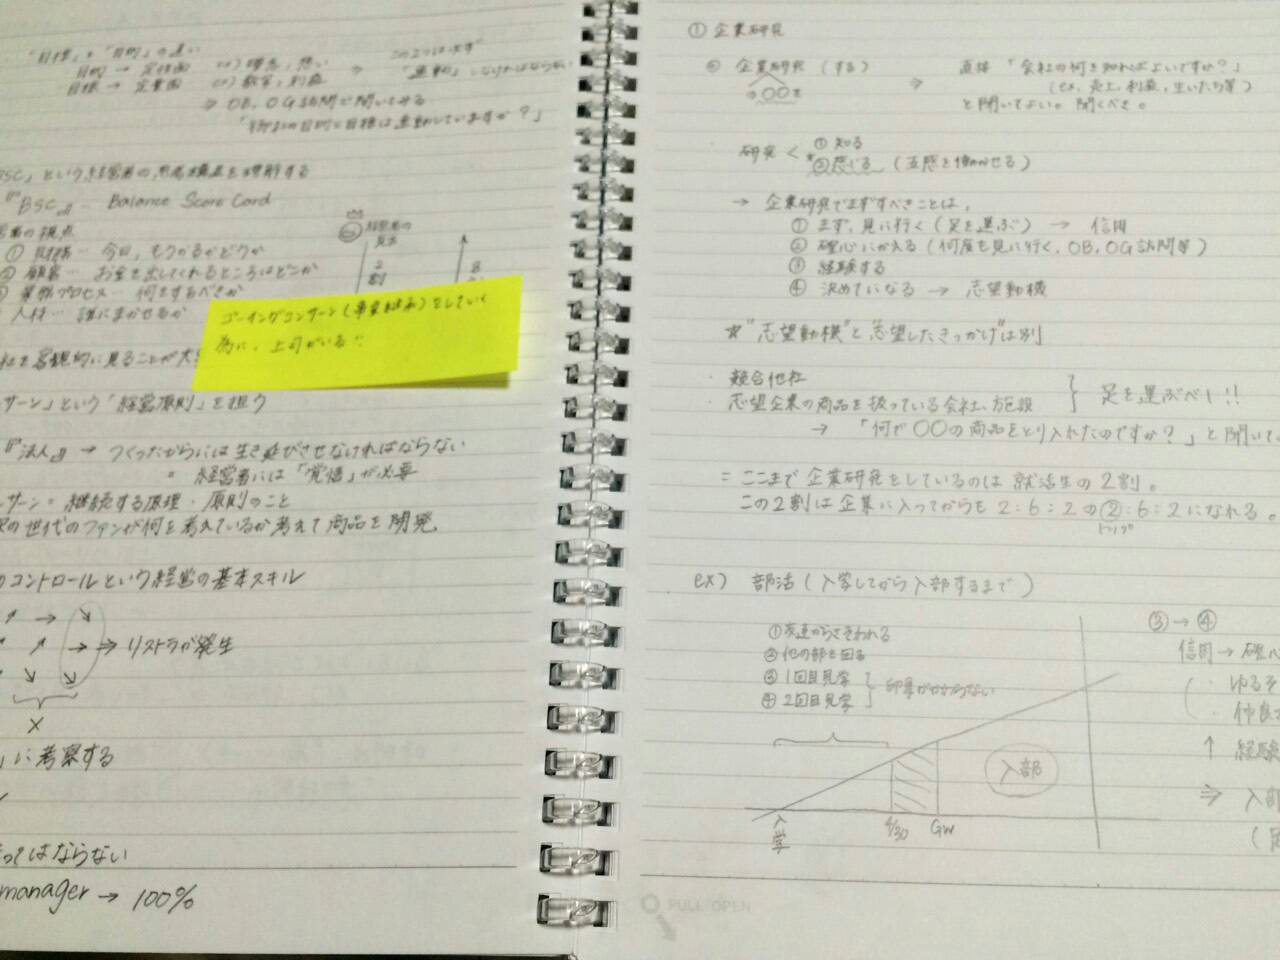 「目標」と「目的」の違い
目的 → 定性面
目標 → 定量面
⇒ OB、OG訪問で聞いてみる
「御社の目的と目標は連動していますか？」
この2つは必ず
「連動」しなければならない
BSC」という経営者の思考構造を理解する
『BSC』… Balance Score Card
営者の視点
① 財務… 今日、もうかるかどうか
② 顧客… お金を出してくれるところはどこか
業務プロセス… 何をするべきか
人材… 誰にまかせるか
経営者の
見方
2
割
8
ゴーイングコンサーン(事業継続)をしていく
為に、上司がいる
社を客観的に見ることが大
サーン」という「経営原則」を担う
『法人』→ つくったからには生き延びさせなければならない
= 経営者には「覚悟」が必要
サーン = 継続する原理・原則のこと
の世代のファンが何を考えているか考えて商品を開発
のコントロールという経営の基本スキル
⇒ リストラが発生
×
に考察する
ってはならない
manager → 100%
① 企業研究
◎ 企業研究 (する)
○○を
⇒ 直接「会社の何を知ればよいですか？」
(ex. 売上、利益、生いたち等)
と聞いてよい。聞くべき。
研究 < ① 知る
*② 感じる (五感を働かせる)
→ 企業研究でまずすべきことは、
① まず、見に行く(足を運ぶ) → 信用
② 確心にかえる(何度も見に行く、OB、OG訪問等)
③ 経験する
④ 決めてになる → 志望動機
☆"志望動機"と"志望したきっかけ"は別
・競合他社
・志望企業の商品を扱っている会社、施設
} 足を運ぶべし!!
→ 「何で○○の商品をとり入れたのですか？」と聞いて
= ここまで企業研究をしているのは就活生の2割。
この2割は企業に入ってからも2:6:2の②:6:2になれる。
トップ
ex) 部活(入学してから入部するまで)
① 友達からさそわれる
② 他の部を回る
③ 1回目見学
④ 2回目見学
} 印象がかわらない
入部
入学
4/30
GW
③ → ④
信用 → 確心
・ゆるそ
・仲良
↑ 経験
⇒ 入部
PULL OPEN